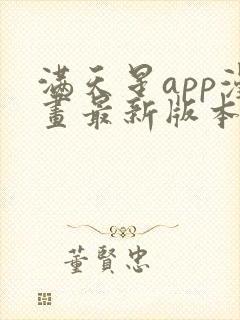 满天星app漫
画最新版本
董賢忠